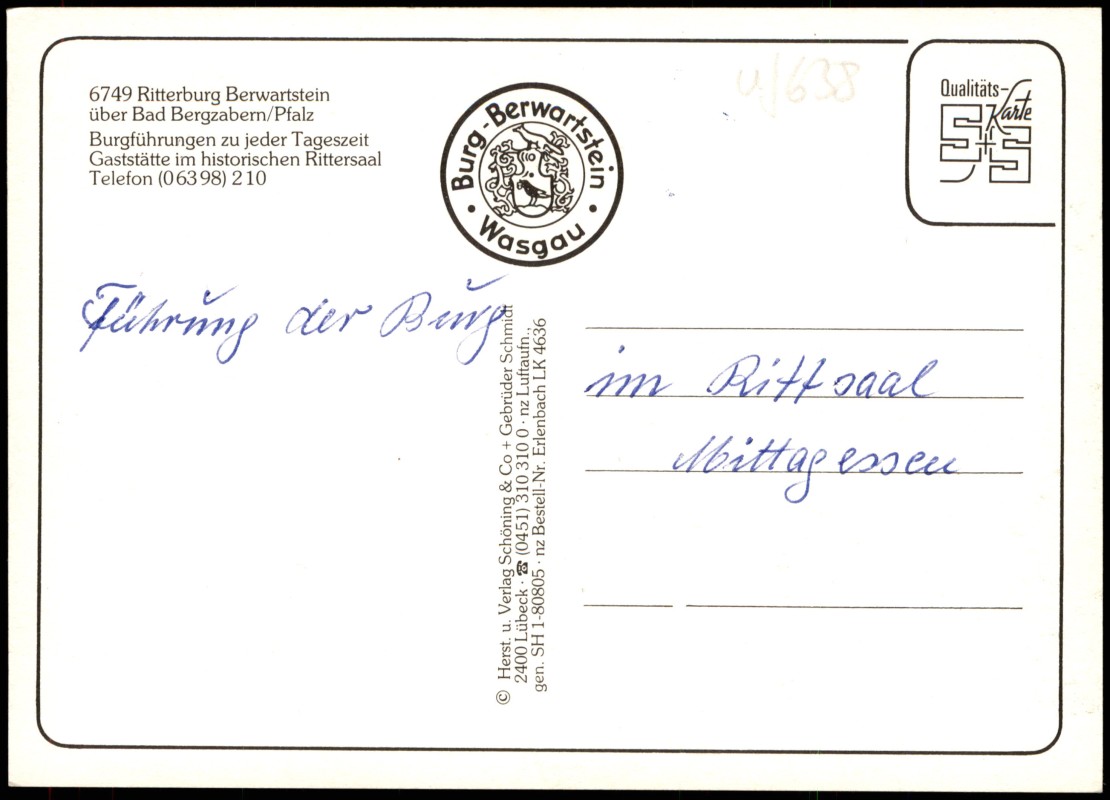 6749 Ritterburg Berwartstein
über Bad Bergzabern/Pfalz
Burgführungen zu jeder Tageszeit
Gaststätte im historischen Rittersaal
Telefon (06398) 210
Burg-Berwartstein
• Wasgau •
u/638
Qualitäts-
Karte
S+S
Führung der Burg
im Rittsaal
Mittagessen
© Herst. u. Verlag Schöning & Co + Gebrüder Schmidt
2400 Lübeck · ☎ (0451) 310 310 0 · nz Luftaufn.,
gen. SH 1-80805 · nz Bestell-Nr. Erlenbach LK 4636